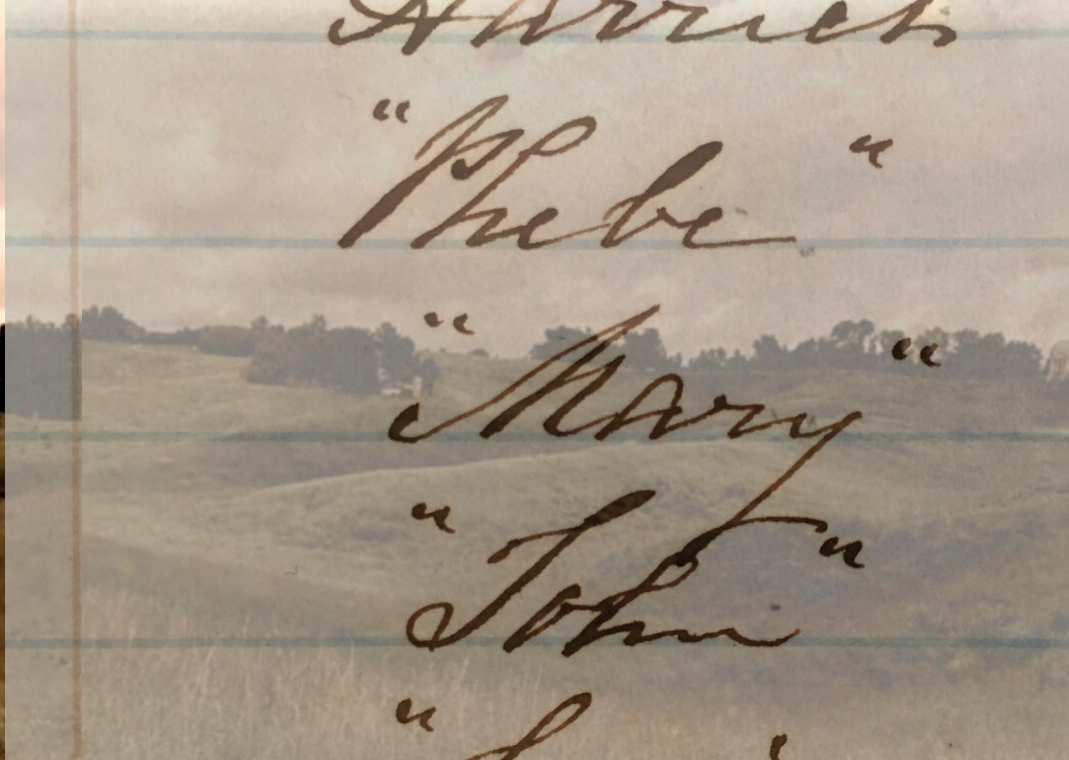 Harriet
"Phebe"
"Mary"
"John"
"